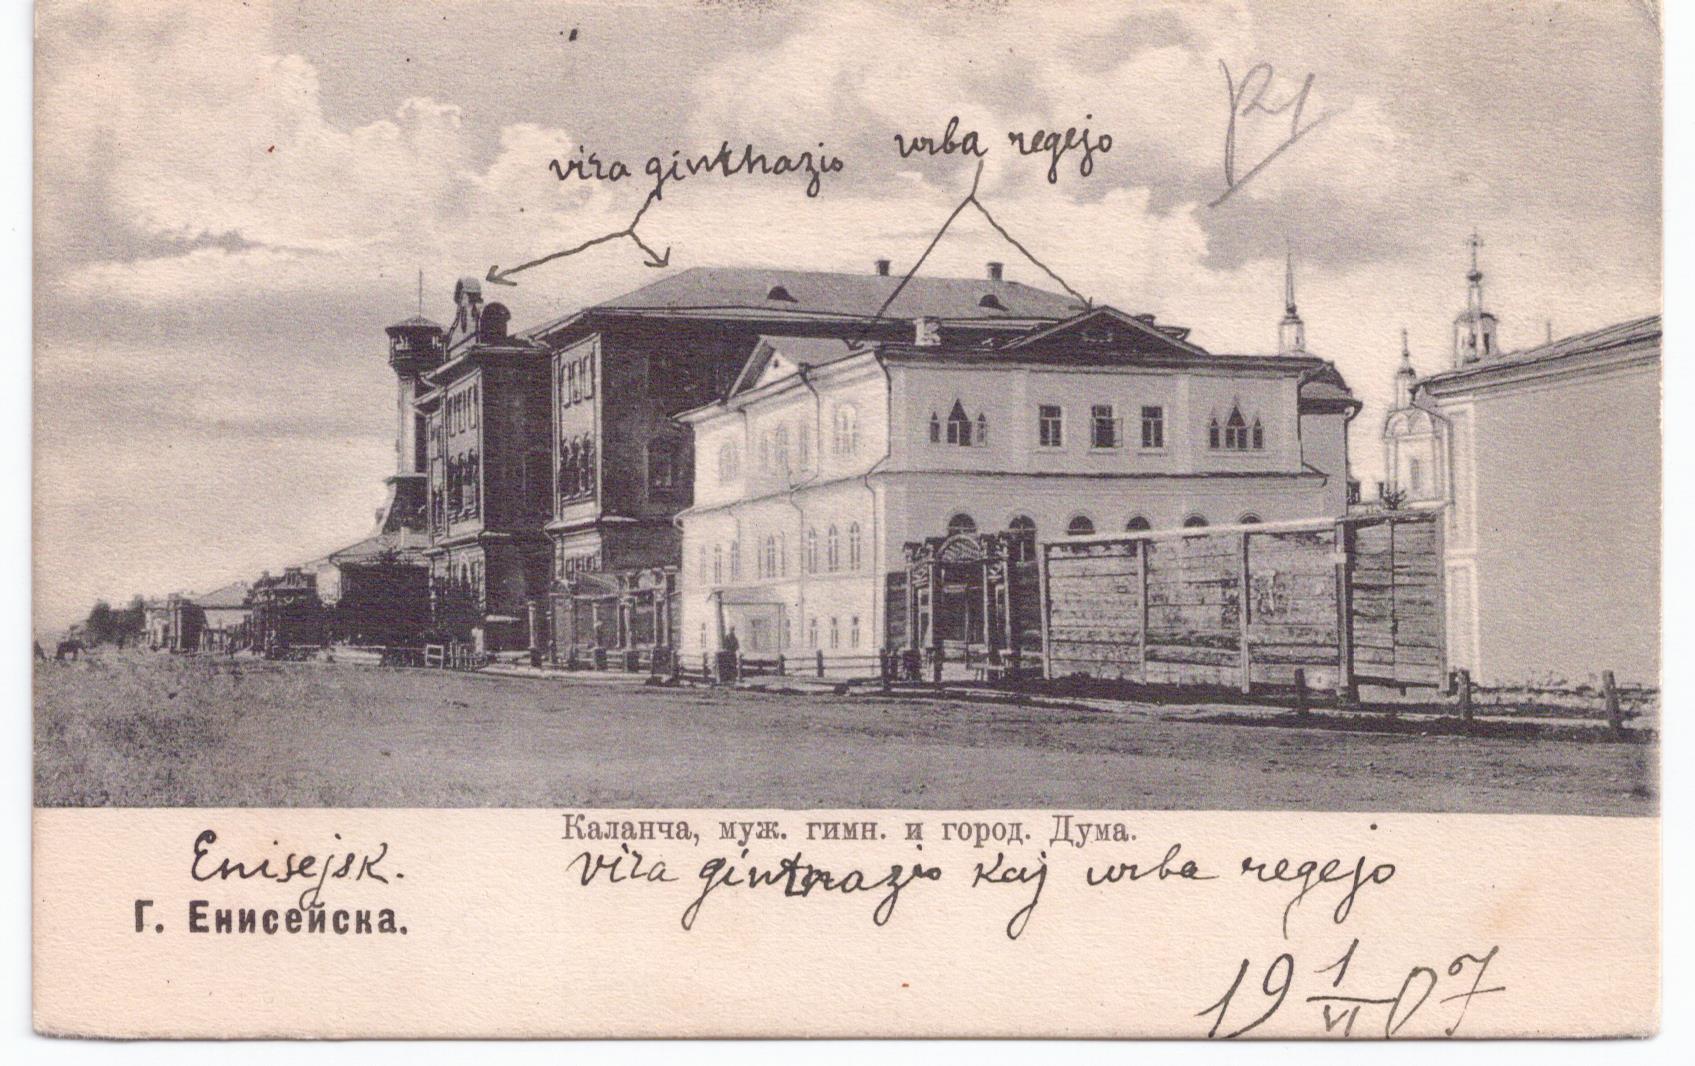 vira gimnazio urba regejo
Каланча, муж. гимн. и город. Дума.
Enisejsk. vira gimnazio kaj urba regejo
Г. Енисейска.
19 1/VI 07